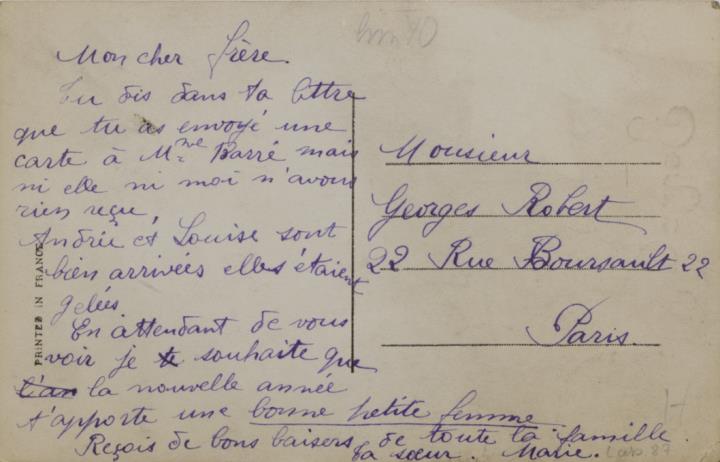 Mon cher frère.
Tu dis dans ta lettre
que tu as envoyé une
carte à Mme Barré mais
ni elle ni moi n'avons
rien reçu,
Andrée et Louise sont
bien arrivées elles étaient
gelées
En attendant de vous
voir je te souhaite que
l'an la nouvelle année
t'apporte une bonne petite femme
Reçois de bons baisers de toute la famille.
ta sœur. Marie.
PRINTED IN FRANCE
Monsieur
Georges Robert
22 Rue Boursault 22
Paris.